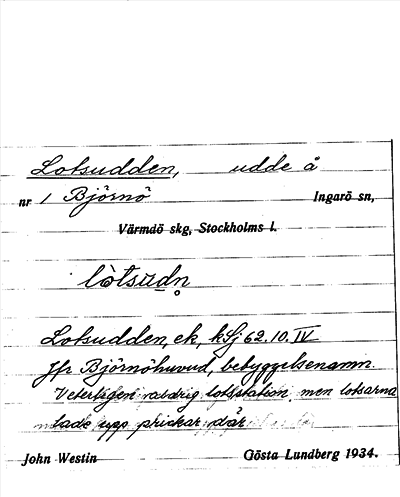 Lotsudden, udde å
nr 1 Björnö Ingarö sn,
Värmdö skg, Stockholms l.
lòtsūdn̥
Lotsudden, ek, kSj 62.10.IV
Jfr Björnöhuvud, bebyggelsenamn.
Veterligen aldrig lotsstation, men lotsarna
lade upp prickar där
John Westin Gösta Lundberg 1934.